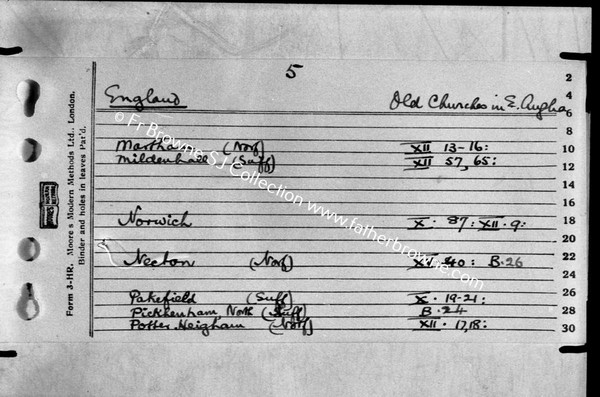 5
2
England Old Churches in E. Anglia 4
6
8
Martham (Norf) XII 13-16: 10
Mildenhall (Suff) XII 57, 65: 12
14
16
Norwich X. 87: XII. 9: 18
20
Necton (Norf) 40: B.26 22
24
Pakefield (Suff) X. 19-21: 26
Pickenham, North (Suff) B.24 28
Potter Heigham (Norf) XII. 17, 18: 30
Form 3-HR. Moore's Modern Methods Ltd., London.
Binder and holes in leaves Pat'd.
© Fr Browne SJ Collection www.fatherbrowne.com